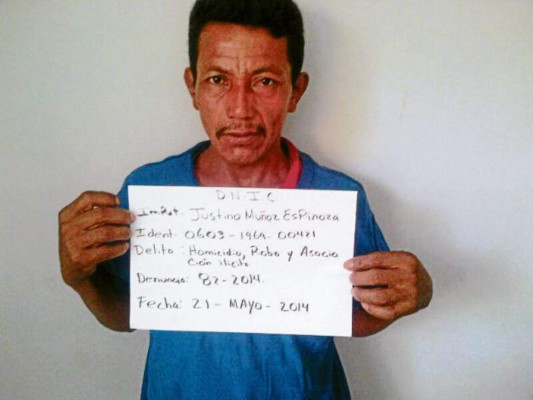 D.N.I.C
Imput. Justino Muñoz EsPinoza
Ident. 0603-1969-00421
Delito: Homicidio, Robo y Asocia
Ción ilicita
Denuncia: 82-2014.
Fecha: 21-MAYO-2014